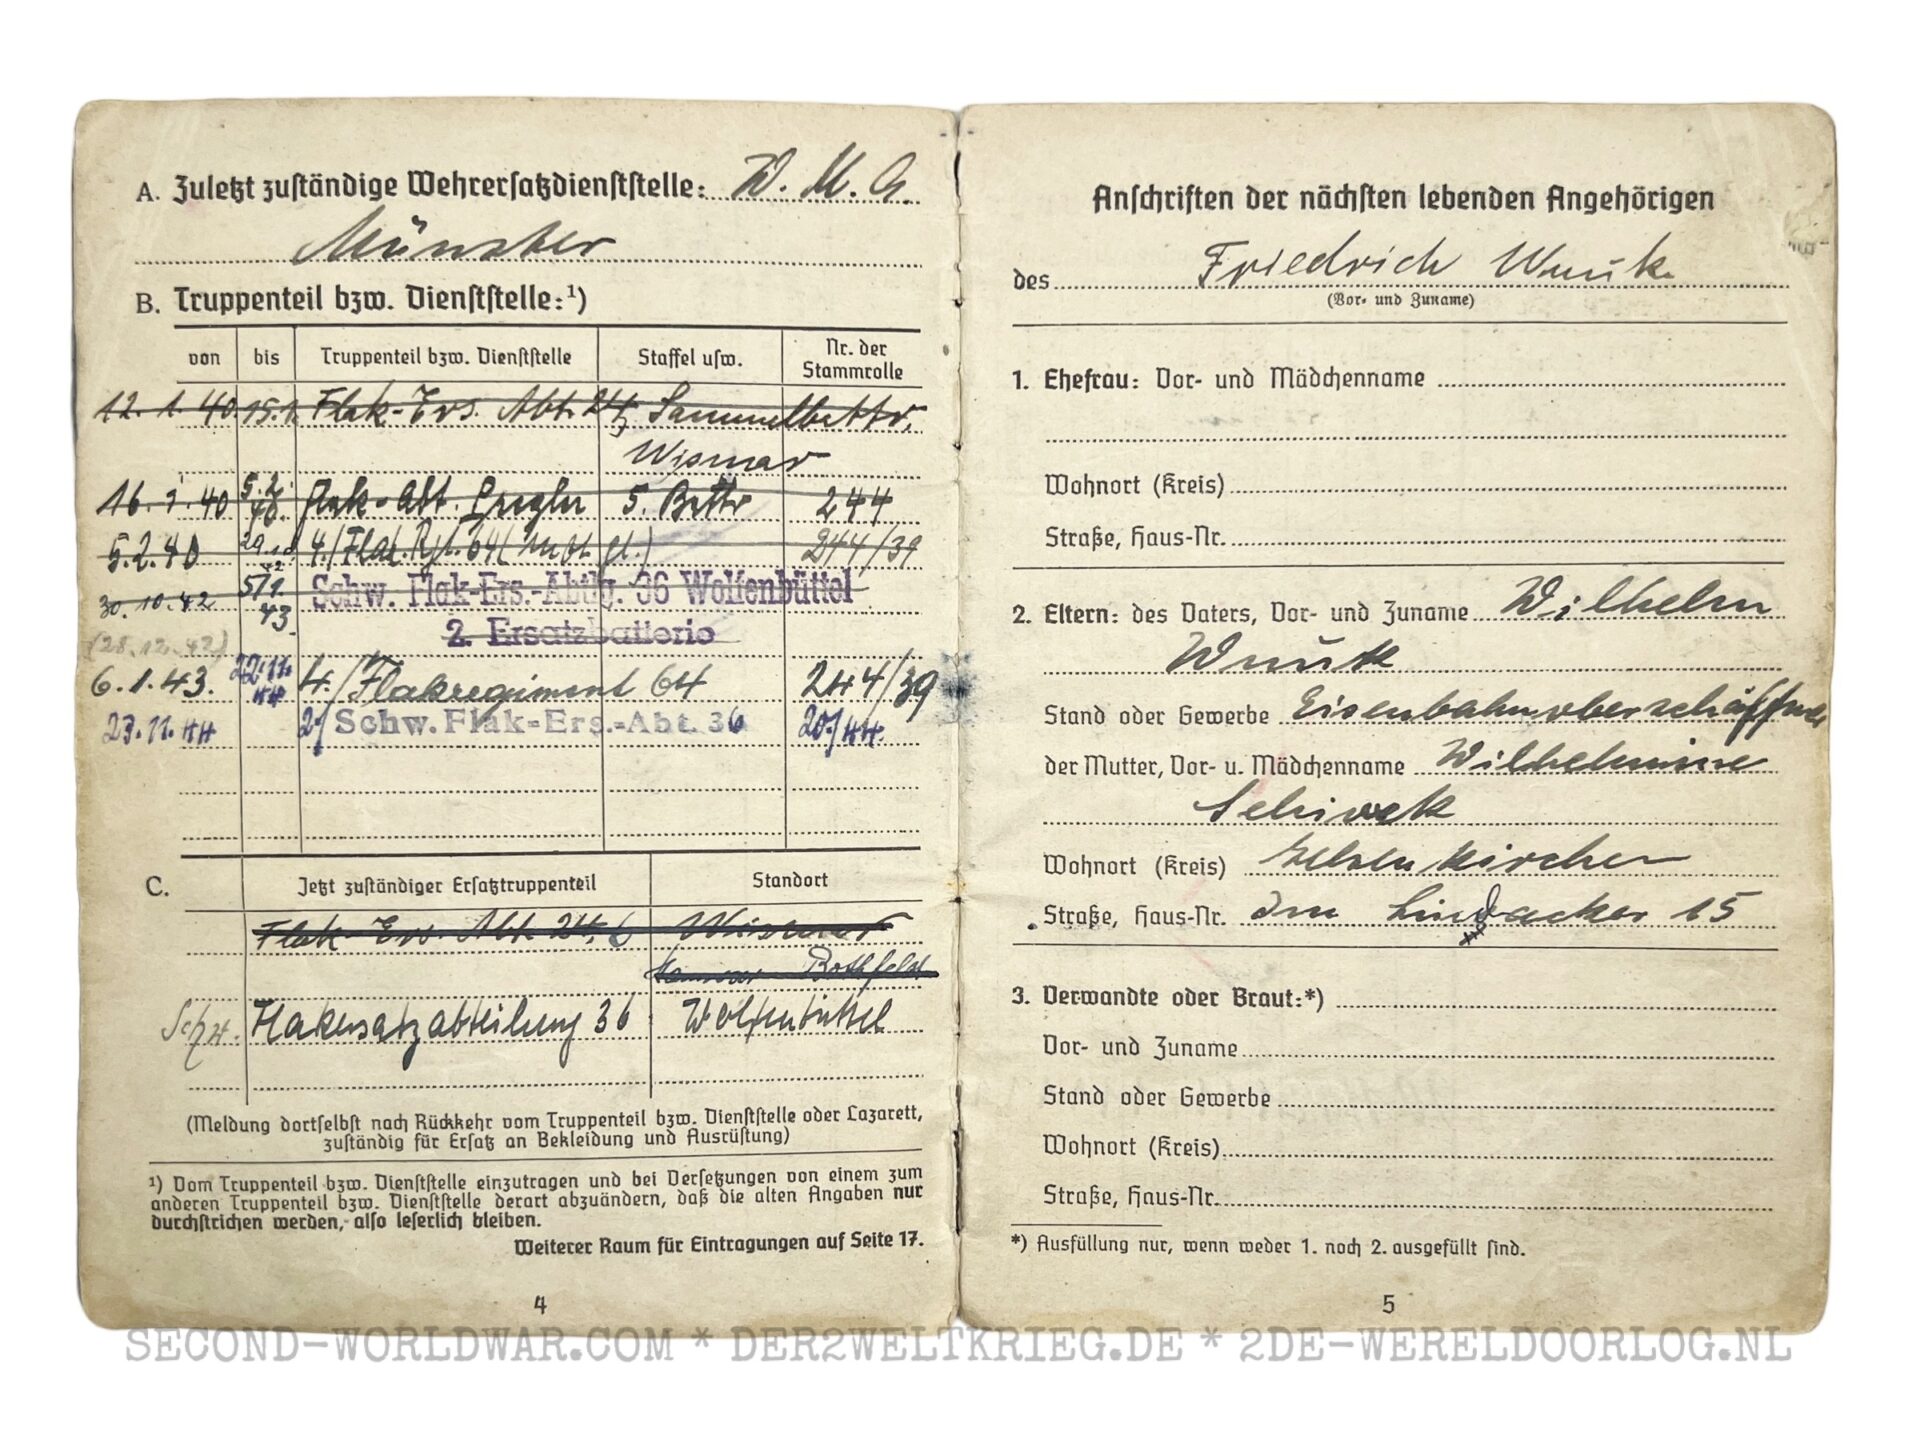 A. Zuletzt zuständige Wehrersatzdienststelle: W. M. A.
Münster
B. Truppenteil bzw. Dienststelle:¹)
von bis Truppenteil bzw. Dienststelle Staffel usw. Nr. der Stammrolle
12. 1. 40. 15.1. Flak-Ers. Abt. 24, Sammelbattr.
Wismar
16. 1. 40 5.2. 40. Flak-Abt. 5. Battr 244
5.2.40 29.10. 42 4./Flak.Rgt. 64 244/39
30. 10. 42 5/1. 43. Schw. Flak-Ers.-Abtlg. 36 Wolfenbüttel
2. Ersatzbatterie
(28.12.42)
6.1.43. 22.11. 44 4./Flakregiment 64 244/39
23.11.44 2/ Schw. Flak=Ers.-Abt. 36 20/44.
C. Jetzt zuständiger Ersatztruppenteil Standort
Flak Ers. Abt. 24, Wismar
Bothfeld
Flakersatzabteilung 36 Wolfenbüttel
(Meldung dortselbst nach Rückkehr vom Truppenteil bzw. Dienststelle oder Lazarett,
zuständig für Ersatz an Bekleidung und Ausrüstung)
¹) Vom Truppenteil bzw. Dienststelle einzutragen und bei Versetzungen von einem zum
anderen Truppenteil bzw. Dienststelle derart abzuändern, daß die alten Angaben nur
durchstrichen werden, also leserlich bleiben.
Weiterer Raum für Eintragungen auf Seite 17.
4
Anschriften der nächsten lebenden Angehörigen
des Friedrich Wnuk
(Vor- und Zuname)
1. Ehefrau: Vor- und Mädchenname
Wohnort (Kreis)
Straße, Haus-Nr.
2. Eltern: des Vaters, Vor- und Zuname Wilhelm
Wnuk
Stand oder Gewerbe Eisenbahnoberschaffner
der Mutter, Vor- u. Mädchenname Wilhelmine
Wohnort (Kreis) Gelsenkirchen
Straße, Haus-Nr. Im Lindacker 15
3. Verwandte oder Braut:*)
Vor- und Zuname
Stand oder Gewerbe
Wohnort (Kreis)
Straße, Haus-Nr.
*) Ausfüllung nur, wenn weder 1. noch 2. ausgefüllt sind.
5
SECOND-WORLDWAR.COM * DER2WELTKRIEG.DE * 2DE-WERELDOORLOG.NL